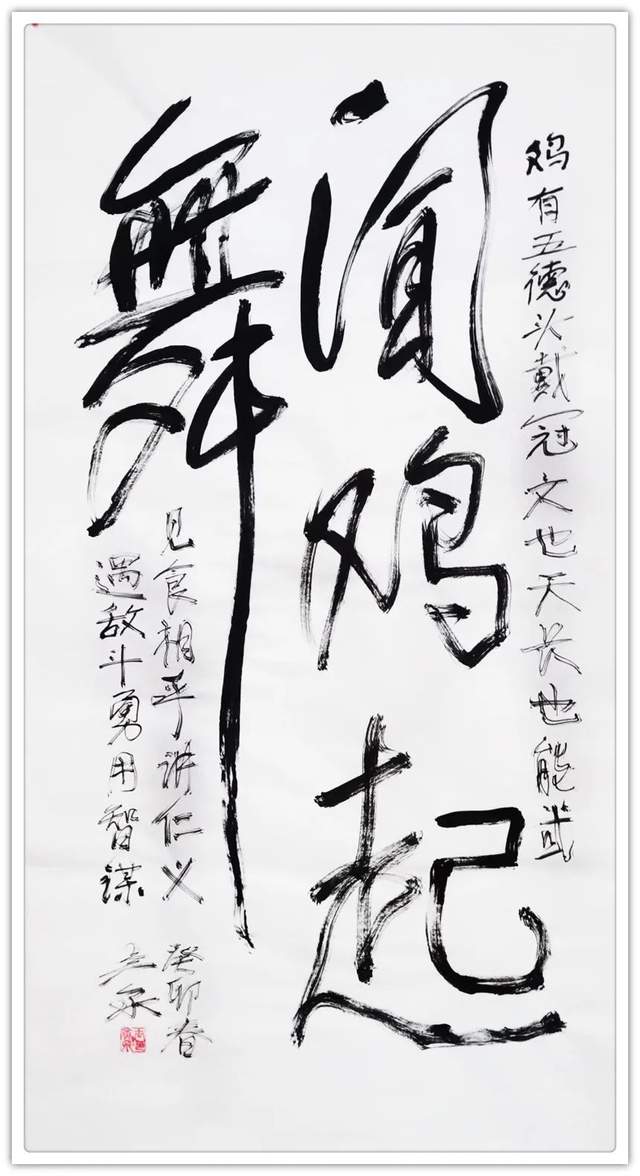 鸡有五德头戴冠文也天长也能武
闻鸡起
舞
见食相乎讲仁义
遇敌斗勇用智谋
癸卯春